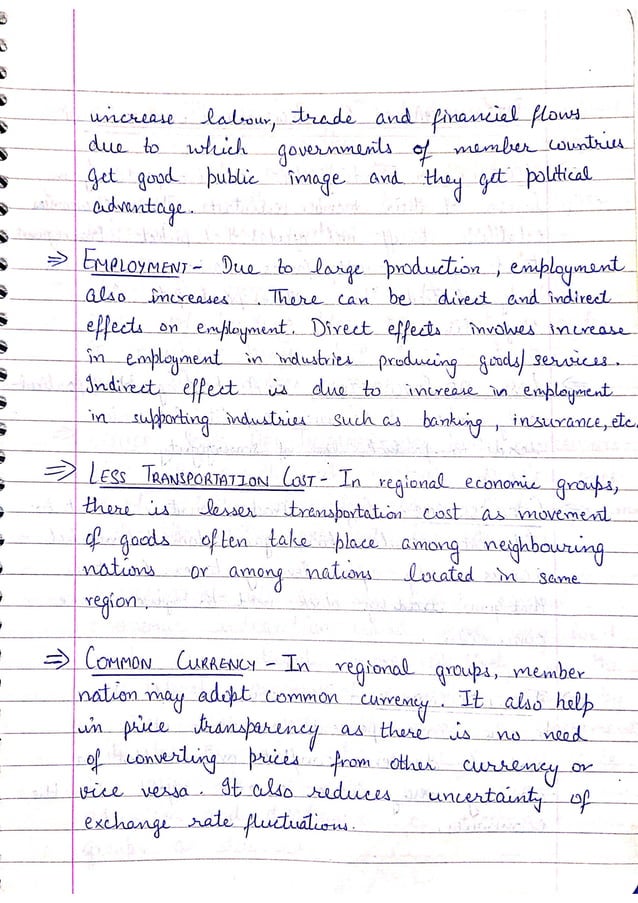 increase labour, trade and financial flows
due to which governments of member countries
get good public image and they get political
advantage.
⇒ EMPLOYMENT - Due to large production, employment
also increases. There can be direct and indirect
effects on employment. Direct effects involves increase
in employment in industries producing goods/services.
Indirect effect is due to increase in employment
in supporting industries such as banking, insurance, etc.
⇒ LESS TRANSPORTATION COST - In regional economic groups,
there is lesser transportation cost as movement
of goods often take place among neighbouring
nations or among nations located in same
region.
⇒ COMMON CURRENCY - In regional groups, member
nation may adopt common currency. It also help
in price transparency as there is no need
of converting prices from other currency or
vice versa. It also reduces uncertainty of
exchange rate fluctuations.